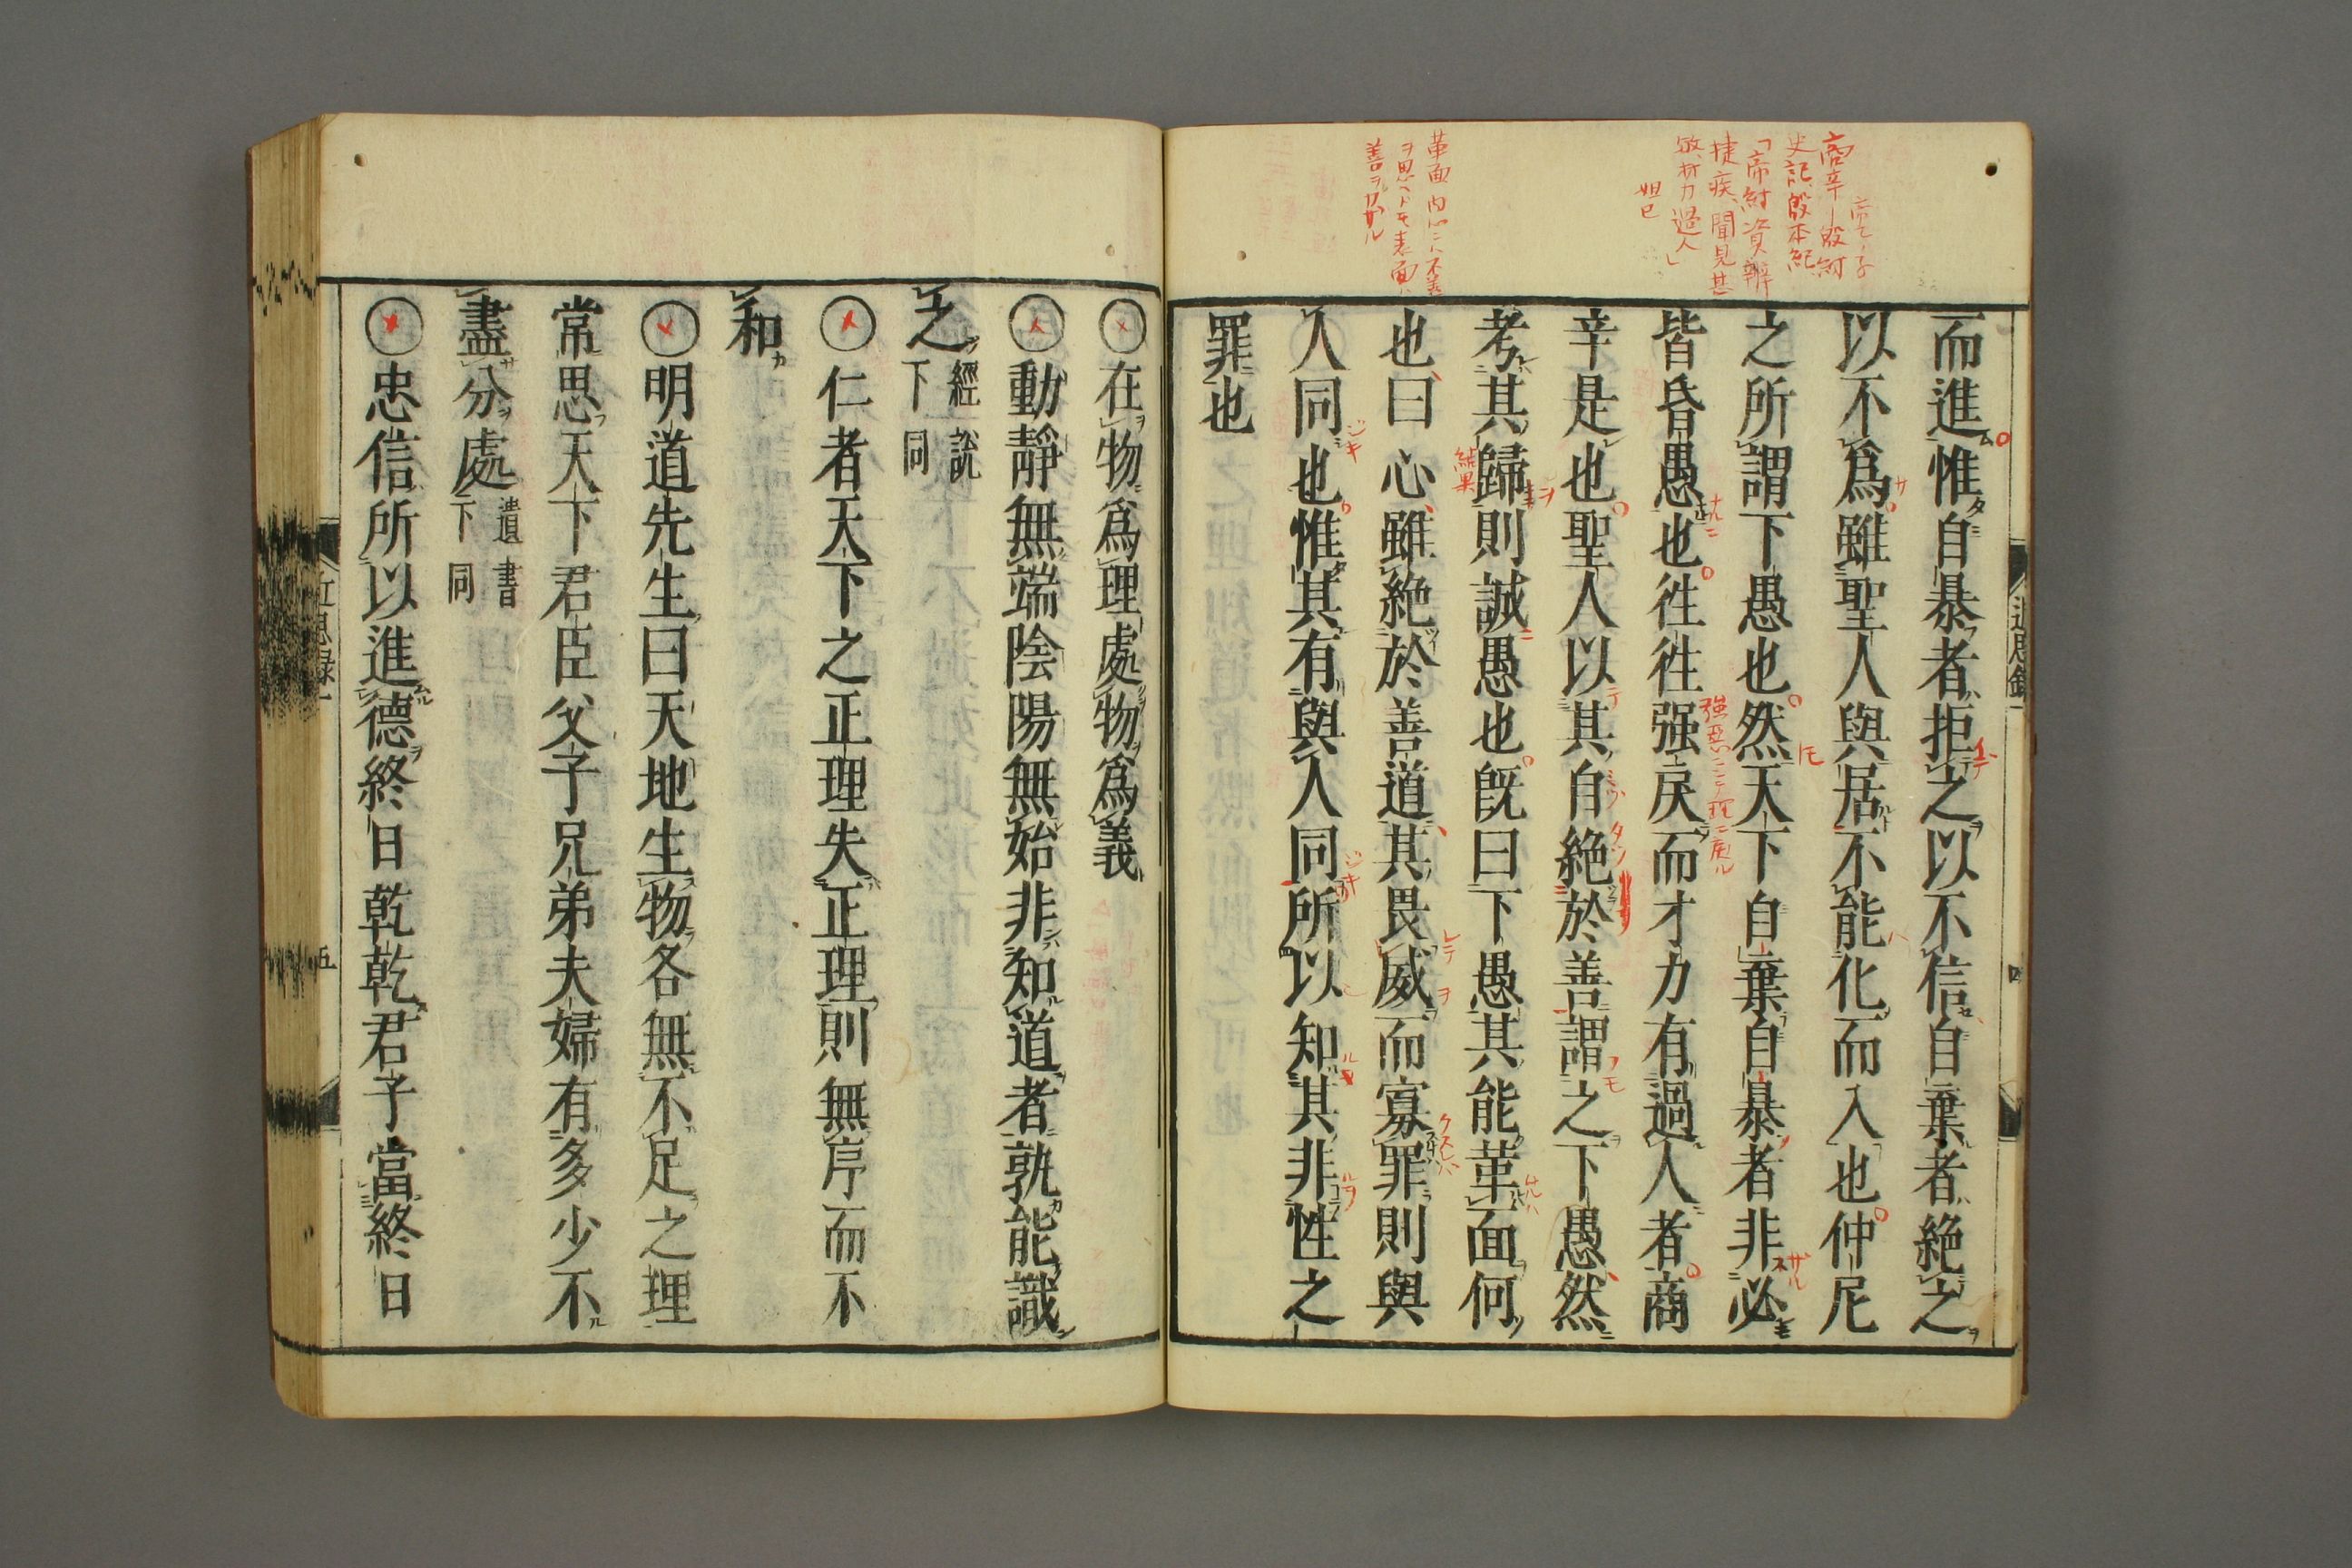 商辛ー殷紂
史記殷本紀
「帝紂資辨
捷疾聞見甚
敏材力過人」
妲己
革面 内心ニハ不善
ヲ思ヘドモ表面ハ
善ヲカザル
而進惟自暴者拒之以不信自棄者絶之
以不爲雖聖人與居不能化而入也仲尼
之所謂下愚也然天下自棄自暴者非必
皆昏愚也徃徃强戾而才力有過人者商
辛是也聖人以其自絶於善謂之下愚然
考其歸則誠愚也旣曰下愚其能革面何
也曰心雖絶於善道其畏威而寡罪則與
人同也惟其有與人同所以知其非性之
罪也
結果
近思錄
四
○在物爲理處物爲義
○動靜無端陰陽無始非知道者孰能識
之 經說下同
○仁者天下之正理失正理則無序而不
和
○明道先生曰天地生物各無不足之理
常思天下君臣父子兄弟夫婦有多少不
盡分處 遺書下同
○忠信所以進德終日乾乾君子當終日
近思録一
五